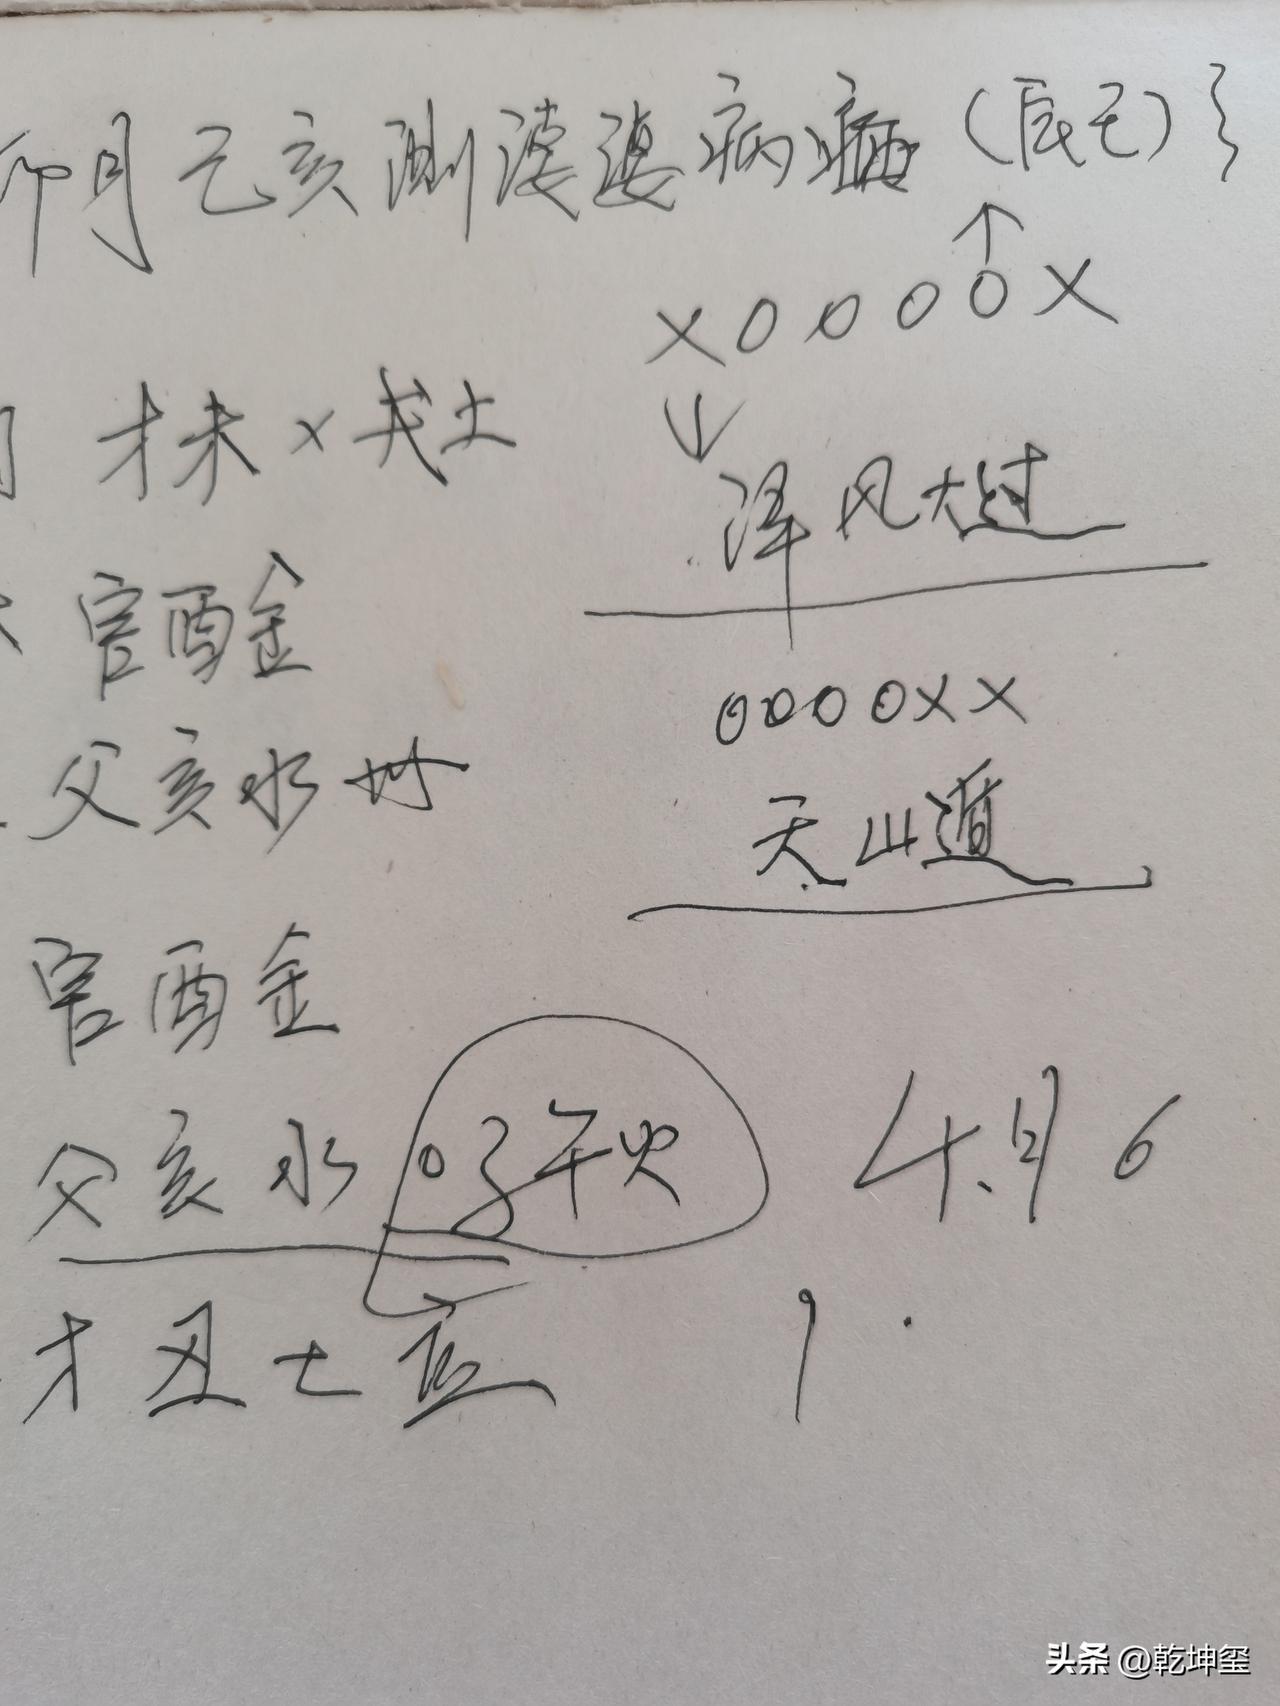 卯月乙亥测婆婆病 (辰巳)
XOOOOX
才未 x 戌土
泽风大过
官酉金
OOOOXX
父亥水世
天山遁
官酉金
父亥水 O 子午火
4月6
才丑土应
头条 @乾坤玺